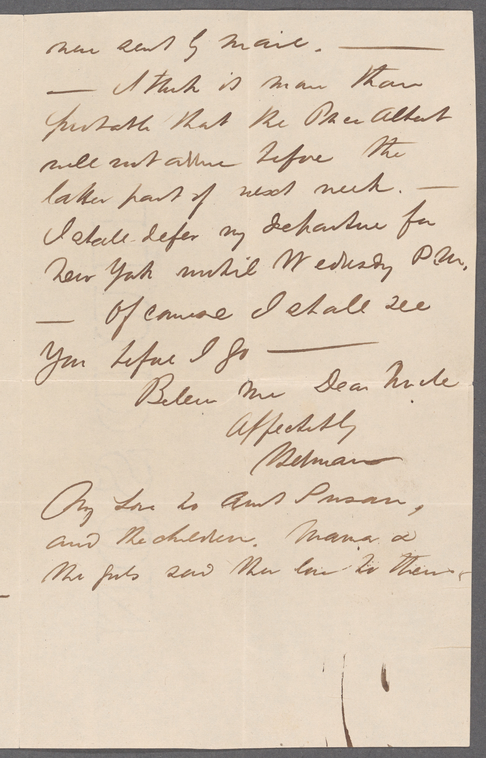 were sent by mail. —
— I think it more than
probable that the Prince Albert
will not arrive before the
latter part of next week. —
I shall defer my departure for
New York until Wednesday P.M.
— Of course I shall see
You before I go —
Believe me Dear Uncle
Affectately
My Love to Aunt Susan,
and the children. Mama &
the girls send their love to them